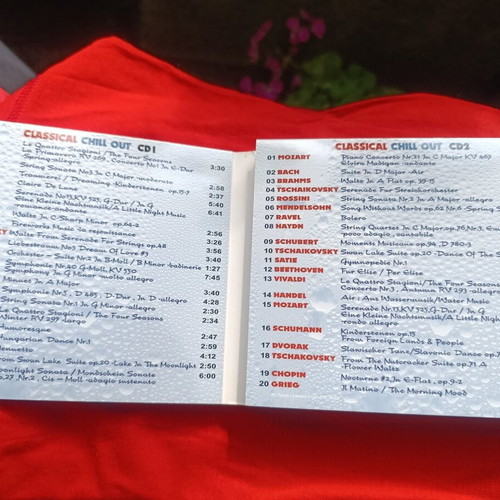 CLASSICAL CHILL OUT CD1
Le Quattro Stagioni / The Four Seasons
La Primavera RV 269, Concerto No1 In E-Dur
Spring-allegro 3:30
String Sonata No3 In C Major-andante 2:58
Traumerei / Dreaming-Kinderstenen op.15-7 2:37
Claire De Lune 5:40
Serenade No13, KV 525, G-Dur / In G
Eine Kleine Nachtmusik/A Little Night Music
romance-andante 6:41
Waltz In C-Sharp Minor op.64-2
Fireworks Music-la rejouissance
Waltz From Serenade For Strings op.48 2:56
Liebestraum No3 Dream Of Love 3:26
Orchester - Suite No2 In B-Moll / B Minor-badinerie 1:27
Symphonie No 40 G-Moll, KV 550
Symphony In G Minor-molto allegro 7:45
Minuet In A Major 3:40
Symphonie Nr.5, D 485, D-Dur, In D-allegro 4:28
String Sonata No1 In G Major-allegro 2:30
Le Quattro Stagioni / The Four Seasons
Winter RV 297-largo 2:34
Humoresque 2:47
Hungarian Dance No1 2:59
Menuetto 4:12
From Swan Lake Suite op.20-Lake In The Moonlight 2:50
Moonlight Sonata / Mondschein Sonate
op.27, Nr.2, Cis - Moll-adagio sustenato 6:00
CLASSICAL CHILL OUT CD2
01 MOZART Piano Concerto Nr.21 In C Major KV 467
Elvira Madigan-andante
02 BACH Suite In D Major-Air
03 BRAHMS Waltz In A Flat op.39-15
04 TSCHAIKOVSKY Serenade Fur Streichorchester
05 ROSSINI String Sonata Nr.3 In A Major-allegro
06 MENDELSOHN Song Without Words op.62 Nr.6-Spring
07 RAVEL Bolero
08 HAYDN String Quartet In C Major op.76, Nr.3
-poco adagio, cantabile
09 SCHUBERT Moments Musicaux op.94, D 780-3
10 TSCHAIKOVSKY Swan Lake Suite op.20-Dance Of The
11 SATIE Gymnopedie Nr.1
12 BEETHOVEN Fur Elise / Per Elise
13 VIVALDI Le Quattro Stagioni/The Four Seasons
Concerto Nr.3, Autumn RV 293-allegro
14 HANDEL Air: Aus Wassermusik/Water Music
15 MOZART Serenade Nr.13, KV 525, G-Dur / In G
Eine Kleine Nachtmusik/A Little Night
rondo allegro
16 SCHUMANN Kinderstenen op.15
From Foreign Lands & People
17 DVORAK Slawischer Tanz/Slavonic Dance op.
18 TSCHAIKOVSKY From The Nutcracker Suite op.71 A
-Flower Waltz
19 CHOPIN Nocturne #2, In E-Flat, op.9-2
20 GRIEG Il Mutino / The Morning Mood